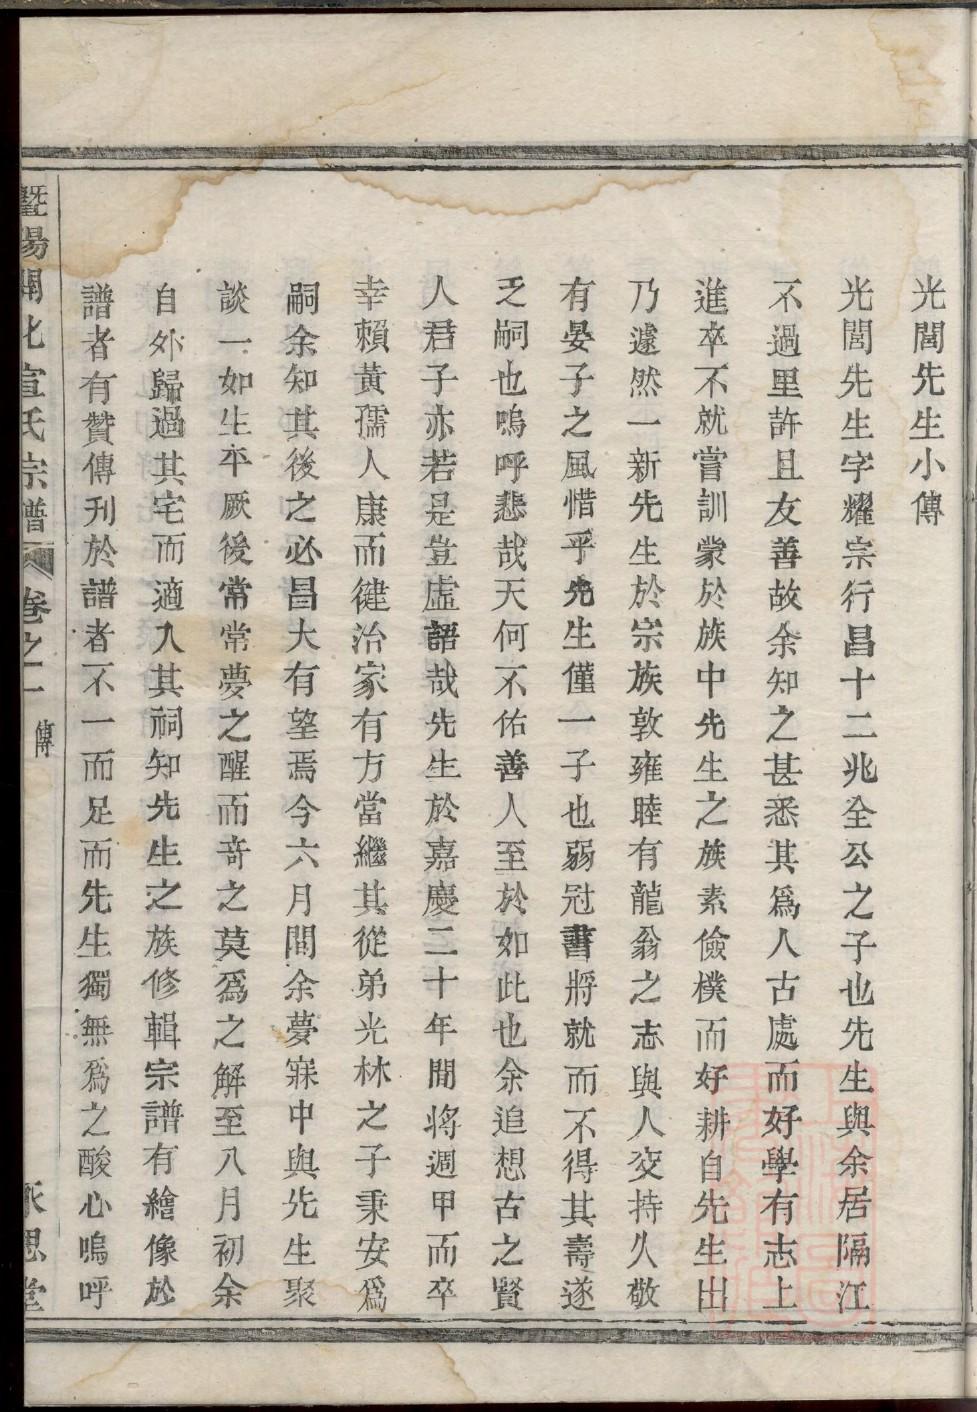 光閭先生小傳
光閭先生字耀宗行昌十二兆全公之子也先生與余居隔江
不過里許且友善故余知之甚悉其為人古處而好學有志上
進卒不就嘗訓蒙於族中先生之族素儉樸而好耕自先生出
乃遽然一新先生於宗族敦雍睦有龍翁之志與人交持久敬
有晏子之風惜乎先生僅一子也弱冠書將就而不得其壽遂
乏嗣也嗚呼悲哉天何不佑善人至於如此也余追想古之賢
人君子亦若是豈虛語哉先生於嘉慶二十年間將週甲而卒
幸賴黃孺人康而健治家有方當繼其從弟光林之子秉安為
嗣余知其後之必昌大有望焉今六月間余夢寐中與先生聚
談一如生平厥後常常夢之醒而奇之莫為之解至八月初余
自外歸過其宅而適入其祠知先生之族修輯宗譜有繪像於
譜者有贊傳刊於譜者不一而足而先生獨無為之酸心嗚呼
暨陽開化宣氏宗譜 卷之一 傳 永思堂